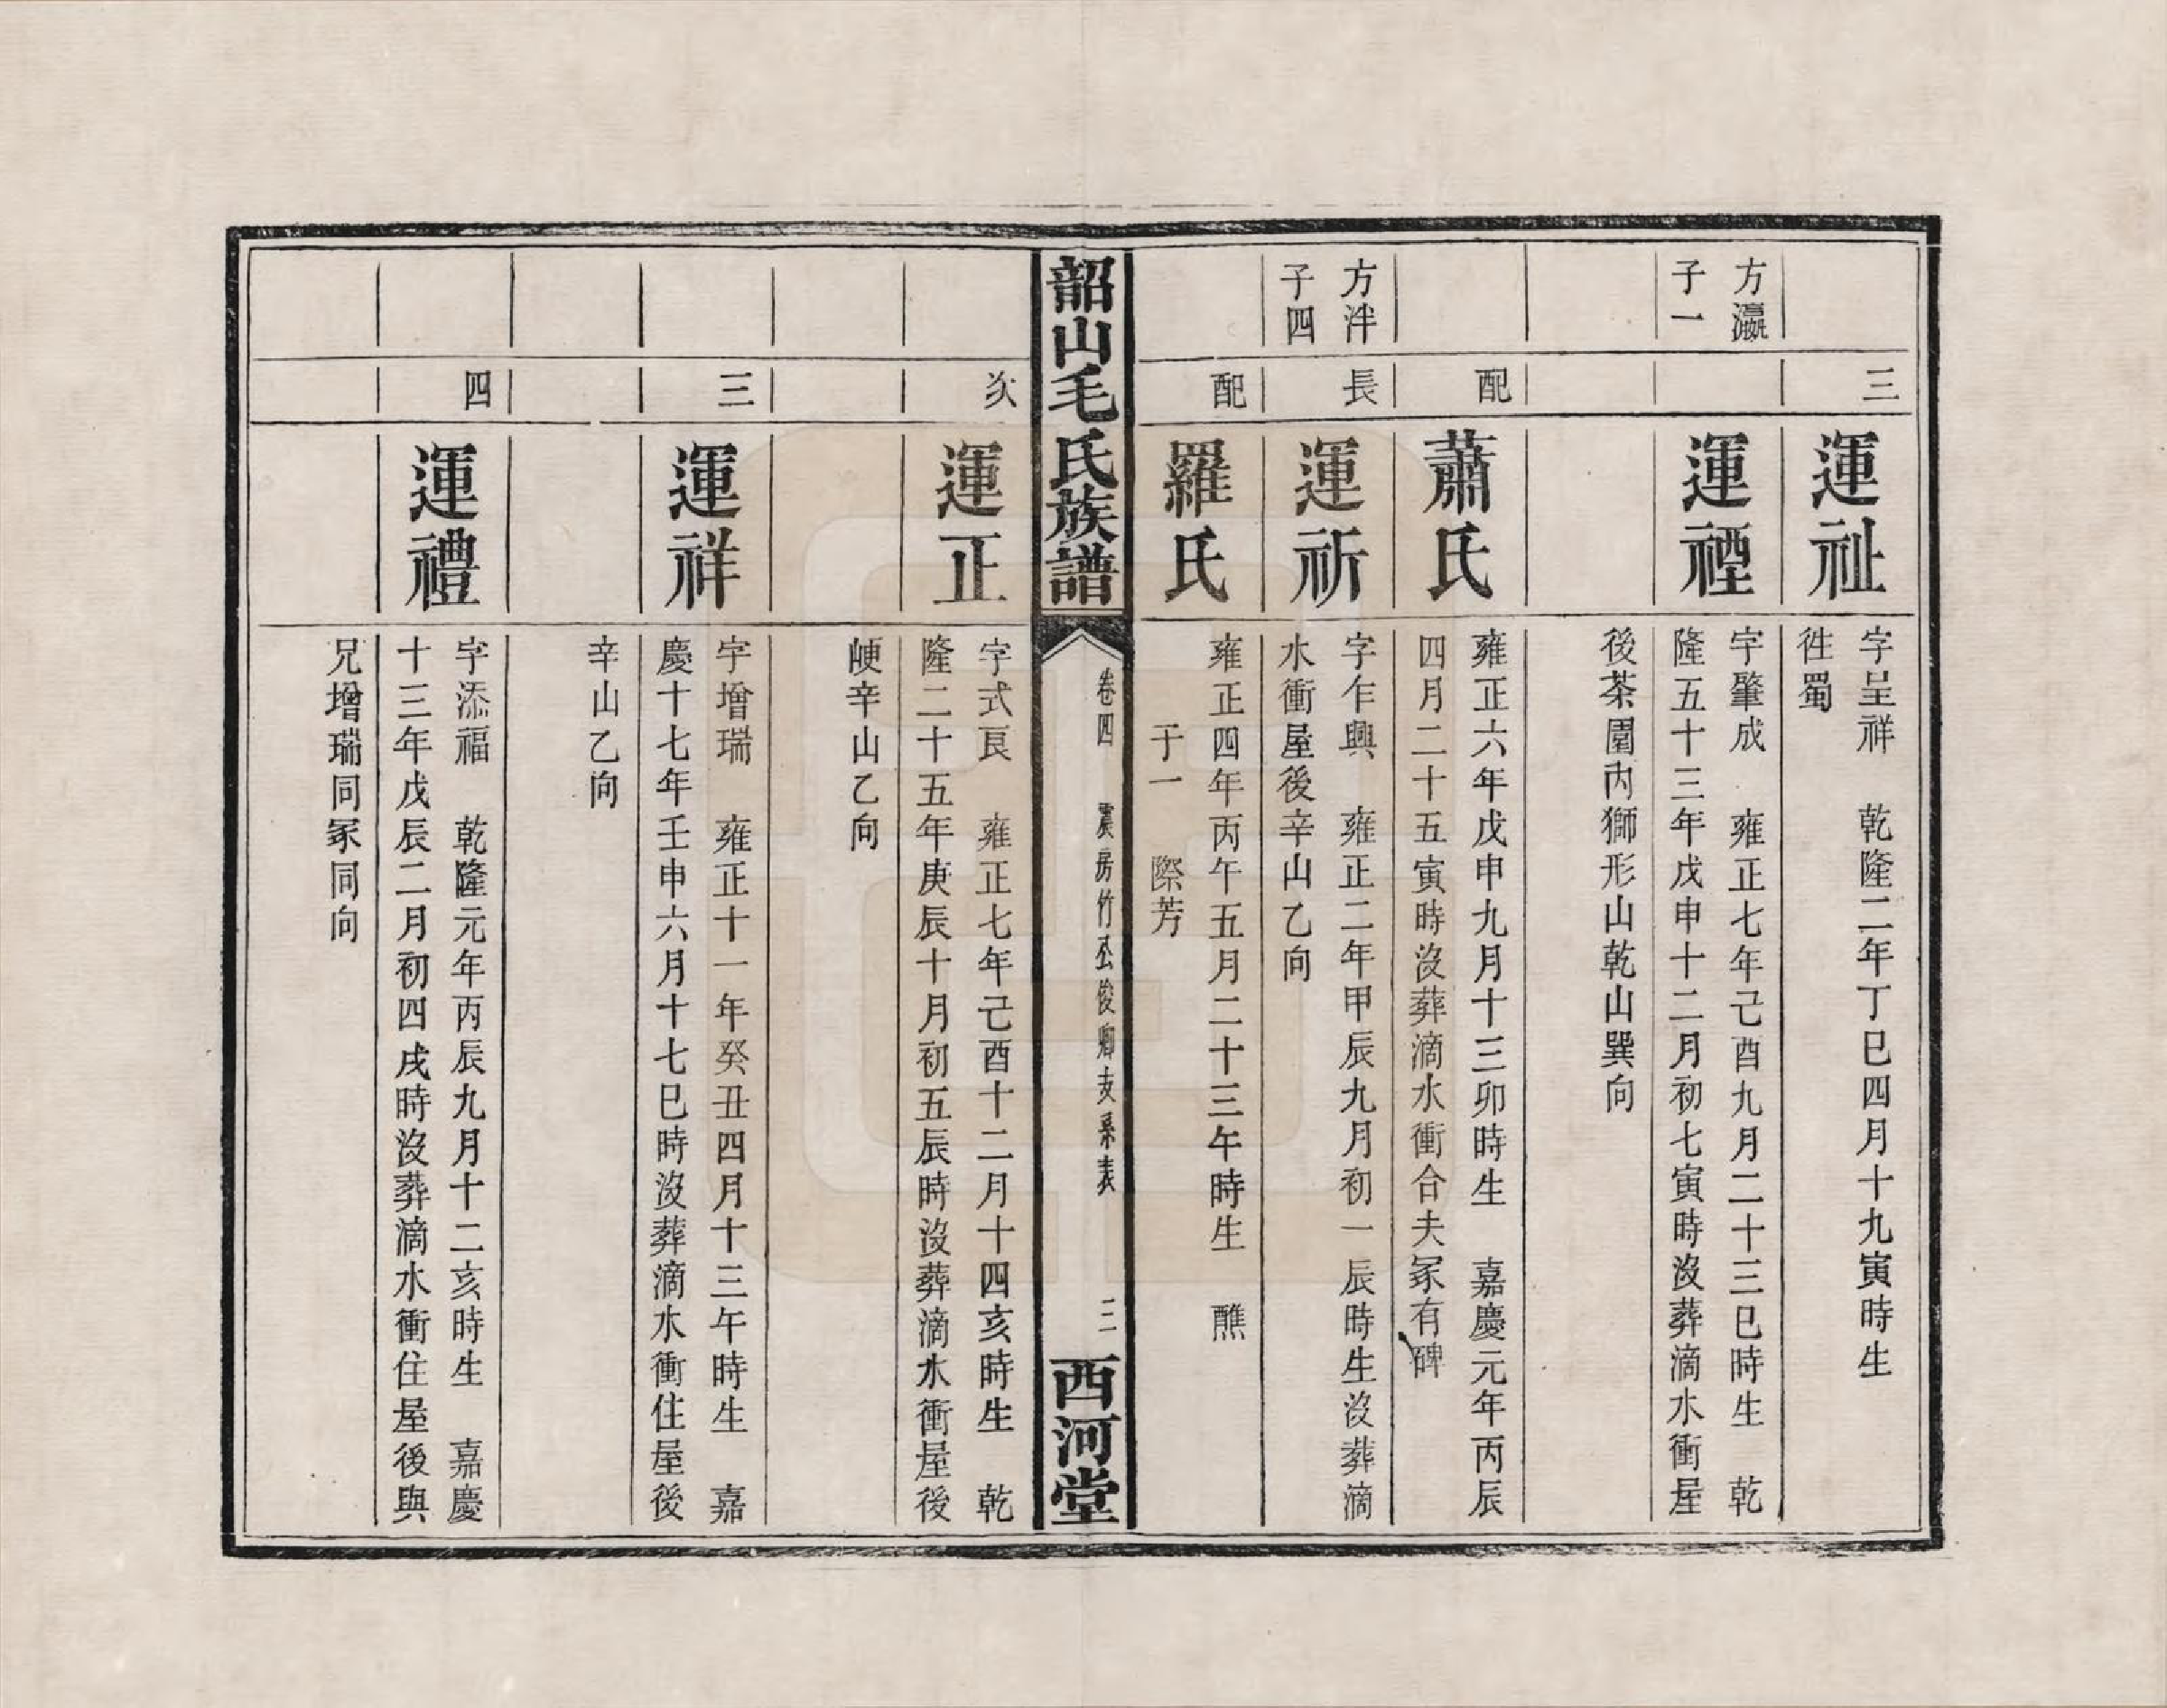 三
運祉
字呈祥　乾隆二年丁巳四月十九寅時生
徃蜀
方瀛
子一
運禋
字肇成　雍正七年己酉九月二十三巳時生　乾
隆五十三年戊申十二月初七寅時沒葬滴水衝屋
後茶園內獅形山乾山巽向
配
蕭氏
雍正六年戊申九月十三卯時生　嘉慶元年丙辰
四月二十五寅時沒葬滴水衝合夫冢有碑
方泮
子四
長
運祈
字乍興　雍正二年甲辰九月初一辰時生沒葬滴
水衝屋後辛山乙向
配
羅氏
雍正四年丙午五月二十三午時生　醮
子一　際芳
韶山毛氏族譜
卷四　震房竹溪俊卿支系表　三
西河堂
次
運正
字式良　雍正七年己酉十二月十四亥時生　乾
隆二十五年庚辰十月初五辰時沒葬滴水衝屋後
㟰辛山乙向
三
運祥
字增瑞　雍正十一年癸丑四月十三午時生　嘉
慶十七年壬申六月十七巳時沒葬滴水衝住屋後
辛山乙向
四
運禮
字添福　乾隆元年丙辰九月十二亥時生　嘉慶
十三年戊辰二月初四戌時沒葬滴水衝住屋後與
兄增瑞同冢同向